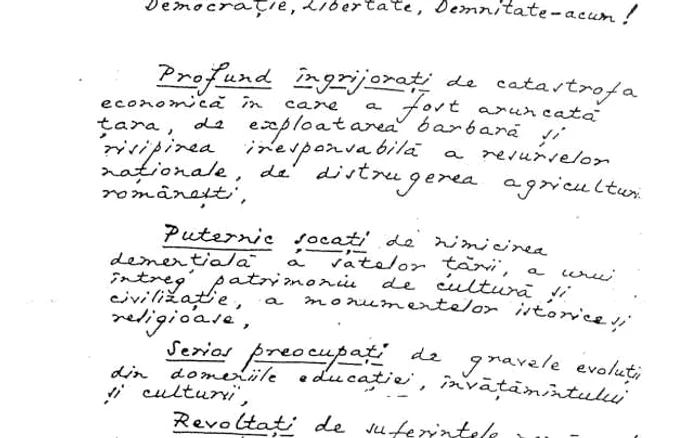 Democrație, Libertate, Demnitate-acum!
Profund îngrijorați de catastrofa
economică în care a fost aruncată
țara, de exploatarea barbară și
risipirea iresponsabilă a resurselor
naționale, de distrugerea agriculturi
românești,
Puternic șocați de nimicirea
demențială a satelor țării, a unui
întreg patrimoniu de cultură și
civilizație, a monumentelor istorice și
religioase,
Serios preocupați de gravele evoluții
din domeniile educației, învățămîntului
și culturii,
Revoltați de suferințele